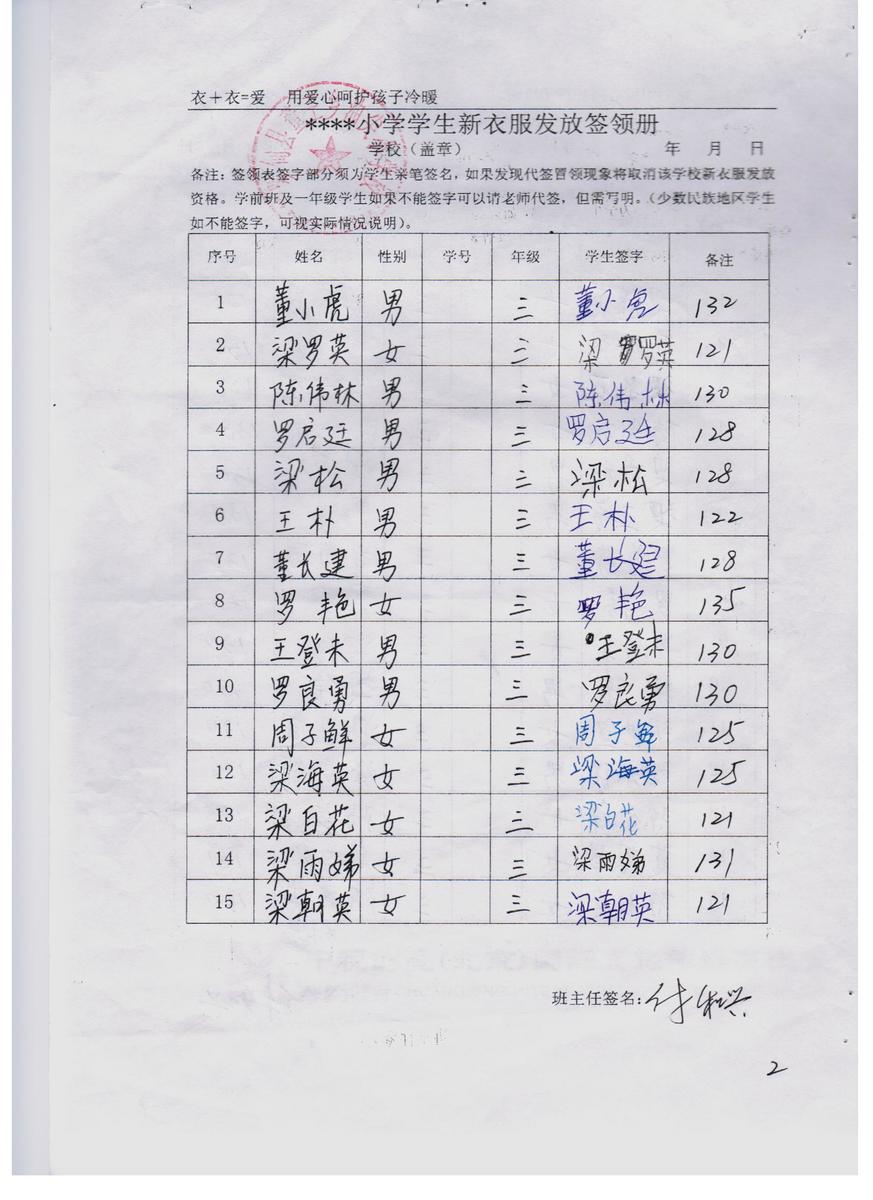 衣＋衣=爱　用爱心呵护孩子冷暖
****小学学生新衣服发放签领册
学校（盖章）　年　月　日
备注：签领表签字部分须为学生亲笔签名，如果发现代签冒领现象将取消该学校新衣服发放
资格。学前班及一年级学生如果不能签字可以请老师代签，但需写明。（少数民族地区学生
如不能签字，可视实际情况说明）。
序号　姓名　性别　学号　年级　学生签字　备注
1　董小虎　男　三　董小虎　132
2　梁罗英　女　三　梁罗英　121
3　陈伟林　男　三　陈伟林　130
4　罗启廷　男　三　罗启廷　128
5　梁松　男　三　梁松　128
6　王朴　男　三　王朴　122
7　董长建　男　三　董长建　128
8　罗艳　女　三　罗艳　135
9　王登未　男　三　王登未　130
10　罗良勇　男　三　罗良勇　130
11　周子鲜　女　三　周子鲜　125
12　梁海英　女　三　梁海英　125
13　梁白花　女　三　梁白花　121
14　梁雨娣　女　三　梁雨娣　131
15　梁朝英　女　三　梁朝英　121
班主任签名：
2